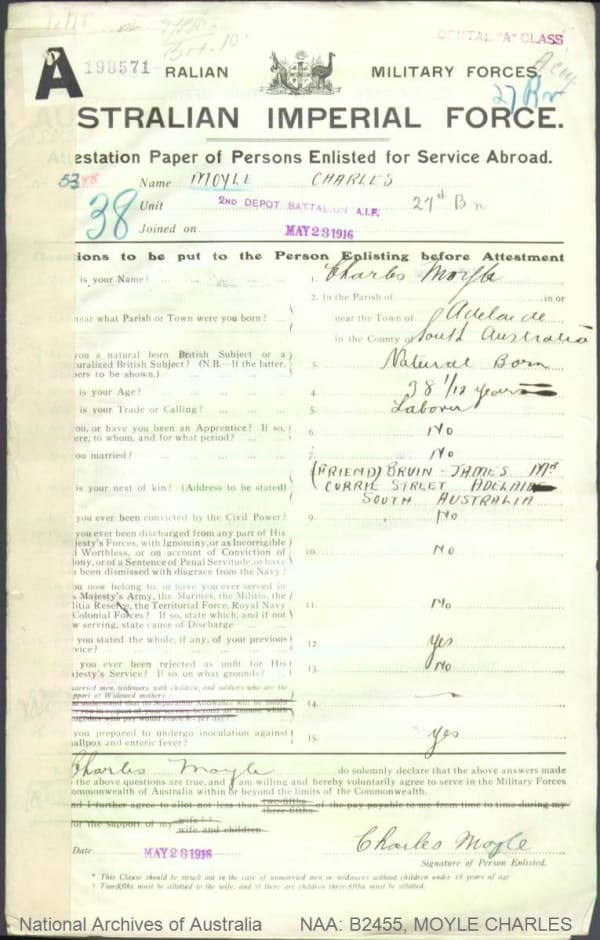 DENTAL "A" CLASS
A 198571 RALIAN MILITARY FORCES.
27 Bn
STRALIAN IMPERIAL FORCE.
estation Paper of Persons Enlisted for Service Abroad.
5388
Name MOYLE CHARLES
38
Unit 2ND DEPOT BATTALION A.I.F. 27th Bn
Joined on MAY 23 1916
ions to be put to the Person Enlisting before Attestment
is your Name? 1. Charles Moyle
2. In the Parish of in or
near what Parish or Town were you born? near the Town of Adelaide
in the County of South Australia
you a natural born British Subject or a
turalized British Subject? (N.B.—If the latter, 3. Natural Born
pers to be shown.)
is your Age? 4. 38 1/12 years
is your Trade or Calling? 5. Laborer
ou, or have you been an Apprentice? If so, 6. No
ere, to whom, and for what period?
you married? 7. No
(FRIEND) BRUIN - JAMES Mr
is your next of kin? (Address to be stated) CURRIE STREET ADELAIDE
SOUTH AUSTRALIA
you ever been convicted by the Civil Power? 9. No
you ever been discharged from any part of His
jesty's Forces, with Ignominy, or as Incorrigible
d Worthless, or on account of Conviction of 10. No
lony, or of a Sentence of Penal Servitude, or have
been dismissed with disgrace from the Navy?
ou now belong to, or have you ever served in
s Majesty's Army, the Marines, the Militia, the
litia Reserve, the Territorial Force, Royal Navy 11. No
Colonial Forces? If so, state which, and if not
w serving, state cause of Discharge
you stated the whole, if any, of your previous 12. Yes
vice?
you ever been rejected as unfit for His 13. No
jesty's Service? If so, on what grounds?
arried men, widowers with children, and soldiers who are the
pport of Widowed mother
u understand that no Separation Allowance will be issued 14.
to you in respect of your service beyond an amount which
together with pay would reach 8/- per day?
you prepared to undergo inoculation against 15. Yes
allpox and enteric fever?
Charles Moyle do solemnly declare that the above answers made
the above questions are true, and I am willing and hereby voluntarily agree to serve in the Military Forces
ommonwealth of Australia within or beyond the limits of the Commonwealth.
nd I further agree to allot not less than two-fifths three-fifths of the pay payable to me from time to time during my
for the support of my wife wife and children.
Date MAY 23 1916 Charles Moyle
Signature of Person Enlisted.
* This Clause should be struck out in the case of unmarried men or widowers without children under 18 years of age
† Two-fifths must be allotted to the wife, and if there are children three-fifths must be allotted.
National Archives of Australia NAA: B2455, MOYLE CHARLES